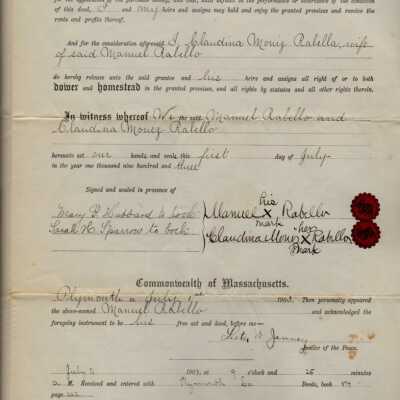 of this deed, I and my heirs and assigns may hold and enjoy the granted premises and receive the
rents and profits thereof.
And for the consideration aforesaid I, Claudina Moniz Rabello, wife
of said Manuel Rabello
do hereby release unto the said grantee and his heirs and assigns all right of or to both
dower and homestead in the granted premises, and all rights by statutes and all other rights therein.
In witness whereof We the said Manuel Rabello and
Claudina Moniz Rabello
hereunto set our hands and seals this first day of July
in the year one thousand nine hundred and three
Signed and sealed in presence of
Mary B Hubbard to both
Sarah H. Sparrow to both
his
Manuel X Rabello
mark
her
Claudina Moniz X Rabello
mark
Commonwealth of Massachusetts.
Plymouth ss July 1st 1903. Then personally appeared
the above-named Manuel Rabello and acknowledged the
foregoing instrument to be his free act and deed, before me—
Justice of the Peace.
July 2 1903, at 9 o'clock and 25 minutes
a M. Received and entered with Plymouth Co Deeds, book
page